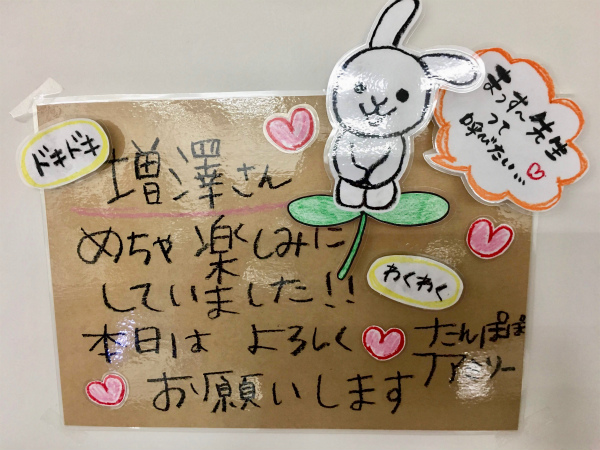 ドキドキ
増澤さん
まっすー先生
って
呼びたい…
めちゃ楽しみに
していました!!
わくわく
本日は よろしく
お願いします
たんぽぽ
ファミリー